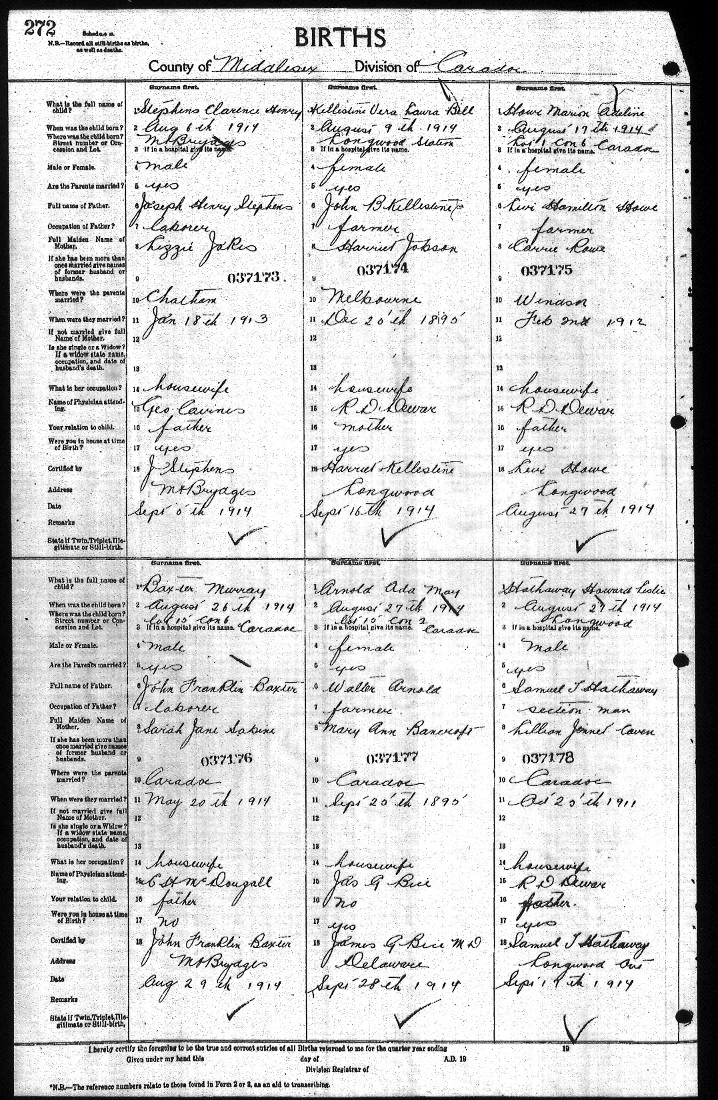 272
Schedule A.
N.B.—Record all still-births as births,
as well as deaths.
BIRTHS
County of Middlesex Division of Caradoc
Surname first. Surname first. Surname first.
What is the full name of child? 1 Stephens Clarence Henry 1 Kellestine Vera Laura Bell 1 Howe Marion Adeline
When was the child born? 2 Aug 6th 1914 2 August 9th 1914 2 August 17th 1914
Where was the child born? Street number or Concession and Lot. 3 If in a hospital give its name. Mt Brydges 3 If in a hospital give its name. Longwood Station 3 If in a hospital give its name. Lot 1 Con 6 Caradoc
Male or Female. 4 male 4 female 4 female
Are the Parents married? 5 yes 5 yes 5 yes
Full name of Father. 6 Joseph Henry Stephens 6 John B Kellestine 6 Levi Hamilton Howe
Occupation of Father? 7 laborer 7 farmer 7 farmer
Full Maiden Name of Mother. 8 Lizzie Jakes 8 Harriet Jobson 8 Carrie Rowe
If she has been more than once married give names of former husband or husbands. 9 037173 9 037174 9 037175
Where were the parents married? 10 Chatham 10 Melbourne 10 Windsor
When were they married? 11 Jan 18th 1913 11 Dec 25th 1895 11 Feb 2nd 1912
If not married give full Name of Mother. 12 12 12
Is she single or a Widow? If a widow state name, occupation, and date of husband's death. 13 13 13
What is her occupation? 14 housewife 14 housewife 14 housewife
Name of Physician attending. 15 Geo 15 R D Dewar 15 R D Dewar
Your relation to child. 16 father 16 mother 16 father
Were you in house at time of Birth? 17 yes 17 yes 17 yes
Certified by 18 J Stephens 18 Harriet Kellestine 18 Levi Howe
Address Mt Brydges Longwood Longwood
Date Sept 5th 1914 Sept 16th 1914 August 27th 1914
Remarks
State if Twin, Triplet, Illegitimate or Still-birth.
Surname first. Surname first. Surname first.
What is the full name of child? 1 Baxter Murray 1 Arnold Ada May 1 Hathaway Howard Leslie
When was the child born? 2 August 26th 1914 2 August 27th 1914 2 August 27th 1914
Where was the child born? Street number or Concession and Lot. 3 If in a hospital give its name. Lot 15 Con 6 Caradoc 3 If in a hospital give its name. Lot 15 Con 2 Caradoc 3 If in a hospital give its name. Longwood
Male or Female. 4 male 4 female 4 Male
Are the Parents married? 5 yes 5 yes 5 yes
Full name of Father. 6 John Franklin Baxter 6 Walter Arnold 6 Samuel T Hathaway
Occupation of Father? 7 laborer 7 farmer 7 section man
Full Maiden Name of Mother. 8 Sarah Jane 8 Mary Ann Bancroft 8 Lillian Jennet Caven
If she has been more than once married give names of former husband or husbands. 9 037176 9 037177 9 037178
Where were the parents married? 10 Caradoc 10 Caradoc 10 Caradoc
When were they married? 11 May 20th 1914 11 Sept 25th 1895 11 Oct 25th 1911
If not married give full Name of Mother. 12 12 12
Is she single or a Widow? If a widow state name, occupation, and date of husband's death. 13 13 13
What is her occupation? 14 housewife 14 housewife 14 housewife
Name of Physician attending. 15 C H McDougall 15 Jas G Bice 15 R D Dewar
Your relation to child. 16 father 16 no 16 father
Were you in house at time of Birth? 17 no 17 yes 17 yes
Certified by 18 John Franklin Baxter 18 James G Bice M D 18 Samuel T Hathaway
Address Mt Brydges Delaware Longwood Ont
Date Aug 29th 1914 Sept 28th 1914 Sept 19th 1914
Remarks
State if Twin, Triplet, Illegitimate or Still-birth,
I hereby certify the foregoing to be the true and correct entries of all Births returned to me for the quarter year ending 19
Given under my hand this day of A.D. 19
Division Registrar of
*N.B.—The reference numbers relate to those found in Form 2 or 3, as an aid to transcribing.